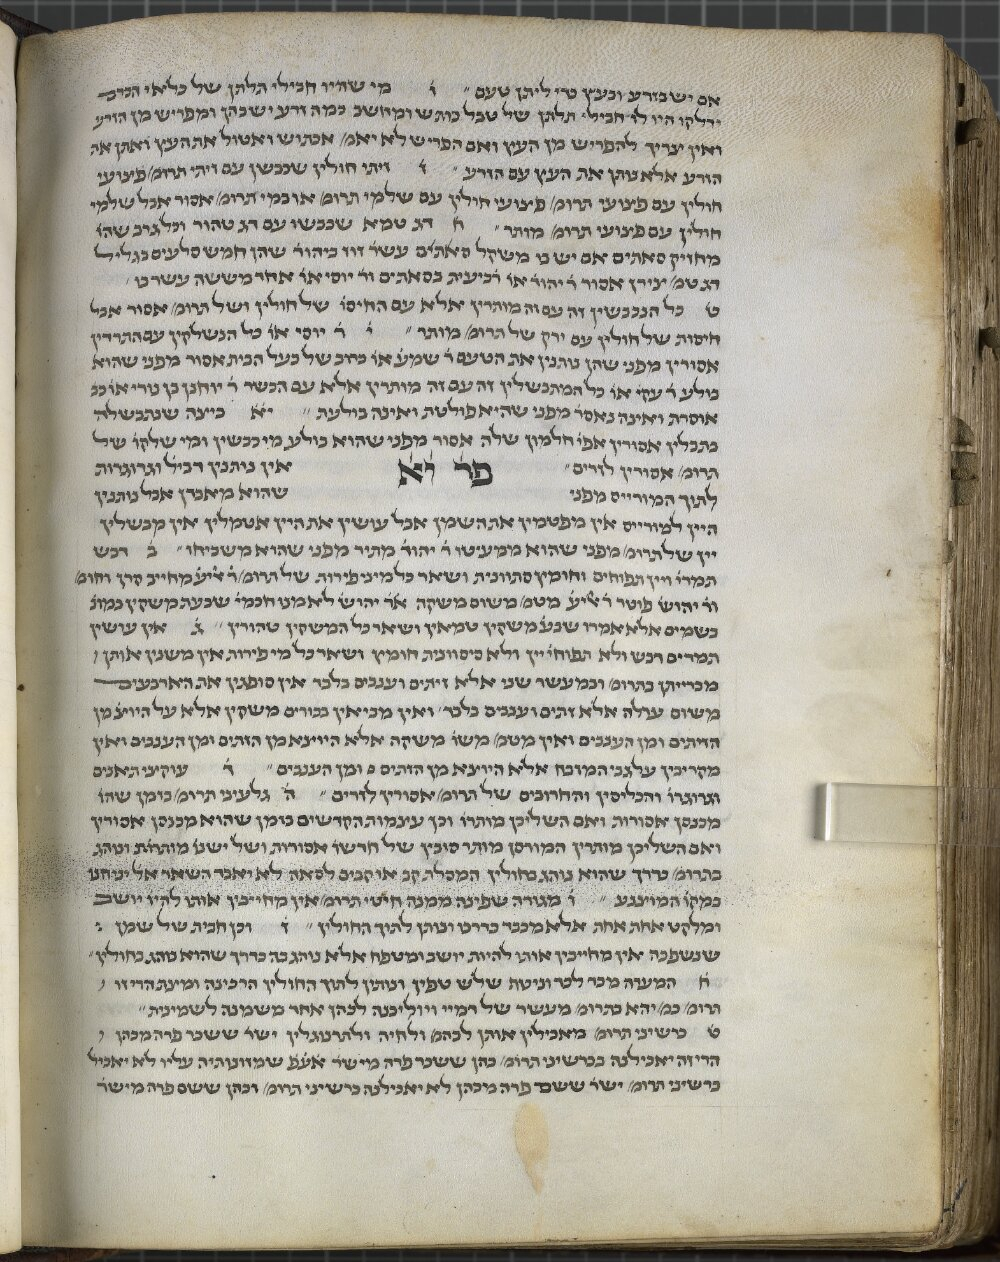 אם יש בזרע ובעץ כדי ליתן טעם ״ ו׳ מי שהיו חבילי תלתן של כלאי הכרם
ידלקו היו לו חבילי תלתן של טבל כותש ומחשב כמה זרע יש בהן ומפריש מן הזרע
ואין צריך להפריש מן העץ ואם הפריש לא יאמ׳ אכתוש ואטול את העץ ואתן את
הזרע אלא נותן את העץ עם הזרע ״ ז׳ זיתי חולין שכבשן עם זיתי תרומ׳ פצועי
חולין עם פצועי תרומ׳ פצועי חולין עם שלמי תרומ׳ או במי תרומ׳ אסור אבל שלמי
חולין עם פצועי תרומ׳ מותר ״ ח׳ דג טמא שכבשו עם דג טהור וכל גרב שהו׳
מחזיק סאתים אם יש בו משקל סאתים עשר׳ זוז ביהוד׳ שהן חמש סלעים בגליל
דג טמ׳ צירן אסור ר׳ יהוד׳ או׳ רביעית בסאתים ור׳ יוסי או׳ אחד מששה עשר בו ׳
ט׳ כל הנכבשין זה עם זה מותרין אלא עם החיסי׳ של חולין ושל תרומ׳ אסור אבל
חיסית של חולין עם ירק של תרומ׳ מותר ״ י׳ ר׳ יוסי או׳ כל הנשלקין עם התרדין
אסורין מפני שהן נותנין את הטעם ר׳ שמע׳ או׳ כרוב של בעל הבית אסור מפני שהוא
בולע ר׳ עקי׳ או׳ כל המתבשלין זה עם זה מותרין אלא עם הבשר ר׳ יוחנן בן נורי או׳ כב׳
אוסרת ואינה נאסר׳ מפני שהיא פולטת ואינה בולעת ״ יא׳ ביצה שנתבשלה
בתבלין אסורין אפי׳ חלמון שלה אסור מפני שהוא בולע מי כבשין ומי שלקו׳ של
תרומ׳ אסורין לזרים ״ פר׳ יא׳ אין נותנין דביל׳ וגרוגרות
לתוך המורייס מפני שהוא מאבדן אבל נותנין
היין למורייס אין מפטמין את השמן אבל עושין את היין אנומלין אין מבשלין
יין של תרומ׳ מפני שהוא ממעיטו ר׳ יהוד׳ מתיר מפני שהוא משביחו ״ ב׳ דבש
תמרי׳ ויין תפוחים וחומץ סתווניות ושאר כל מיני פירות של תרומ׳ ר׳ אליע׳ מחייב קרן וחומ׳
ור׳ יהוש׳ פוטר ר׳ אליע׳ מטמ׳ משום משקה א״ר יהוש׳ לא מנו חכמי׳ שבעת משקין כמונ׳
בשמים אלא אמרו שבע׳ משקין טמאין ושאר כל המשקין טהורין ״ ג׳ אין עושין
תמרים דבש ולא תפוחי׳ יין ולא סיסווניות חומץ ושאר כל מי פירות אין משנין אותן
מברייתן בתרומ׳ ובמעשר שני אלא זיתים וענבים בלבד אין סופגין את הארבעים
משום ערלה אלא זתים וענבים בלבד׳ ואין מביאין בכורים משקין אלא על היוצ׳ מן
הזיתים ומן הענבים ואין מטמ׳ משו׳ משקה אלא היוצא מן הזתים ומן הענבים ואין
מקריבין על גבי המזבח אלא היוצא מן הזתים ומן הענבים ״ ד׳ עוקצי תאנים
וגרוגרו׳ והכליסין והחרובים של תרומ׳ אסורין לזרים ״ ה׳ גלעיני תרומ׳ בזמן שהו׳
מכנסן אסורות ואם השליכן מותרו׳ וכן עצמות הקדשים בזמן שהוא מכנסן אסורין
ואם השליכן מותרין המורסן מותר סובין של חדשו׳ אסורות ושל ישנו׳ מותרות ונוהג
בתרומ׳ כדרך שהוא נוהג בחולין המסלת קב או קבים לסאה לא יאבד השאר אל יניחנו
במקו׳ המוצנע ״ ו׳ מגורה שפינה ממנה חיטי תרומ׳ אין מחייבין אותו להיו׳ יושב
ומלקט אחת אחת אלא מכבד כדרכו ונותן לתוך החולין ״ ז׳ וכן חבית של שמן
שנשפכה אין מחייבין אותו להיות יושב ומטפח אלא נוהג בה כדרך שהוא נוהג בחולין ״
ח׳ המערה מכד לכד וניטף שלש טפין ונותן לתוך החולין הרכינה ומיצת הרי זו
תרומ׳ כמ׳ יהא בתרומ׳ מעשר של דמיי ויוליכנה לכהן אחד משמנה לשמינית ״
ט׳ כרשיני תרומ׳ מאכילין אותן לבהמ׳ ולחיה ולתרנוגלין ישר׳ ששכר פרה מכהן
הרי זה יאכילנה כרשיני תרומ׳ כהן ששכר פרה מישר׳ אעפ׳ שמזונותיה עליו לא יאכיל
כרשיני תרומ׳ ישר׳ ששם פרה מכהן לא יאכילנה כרשיני תרומ׳ וכהן ששם פרה מישר׳